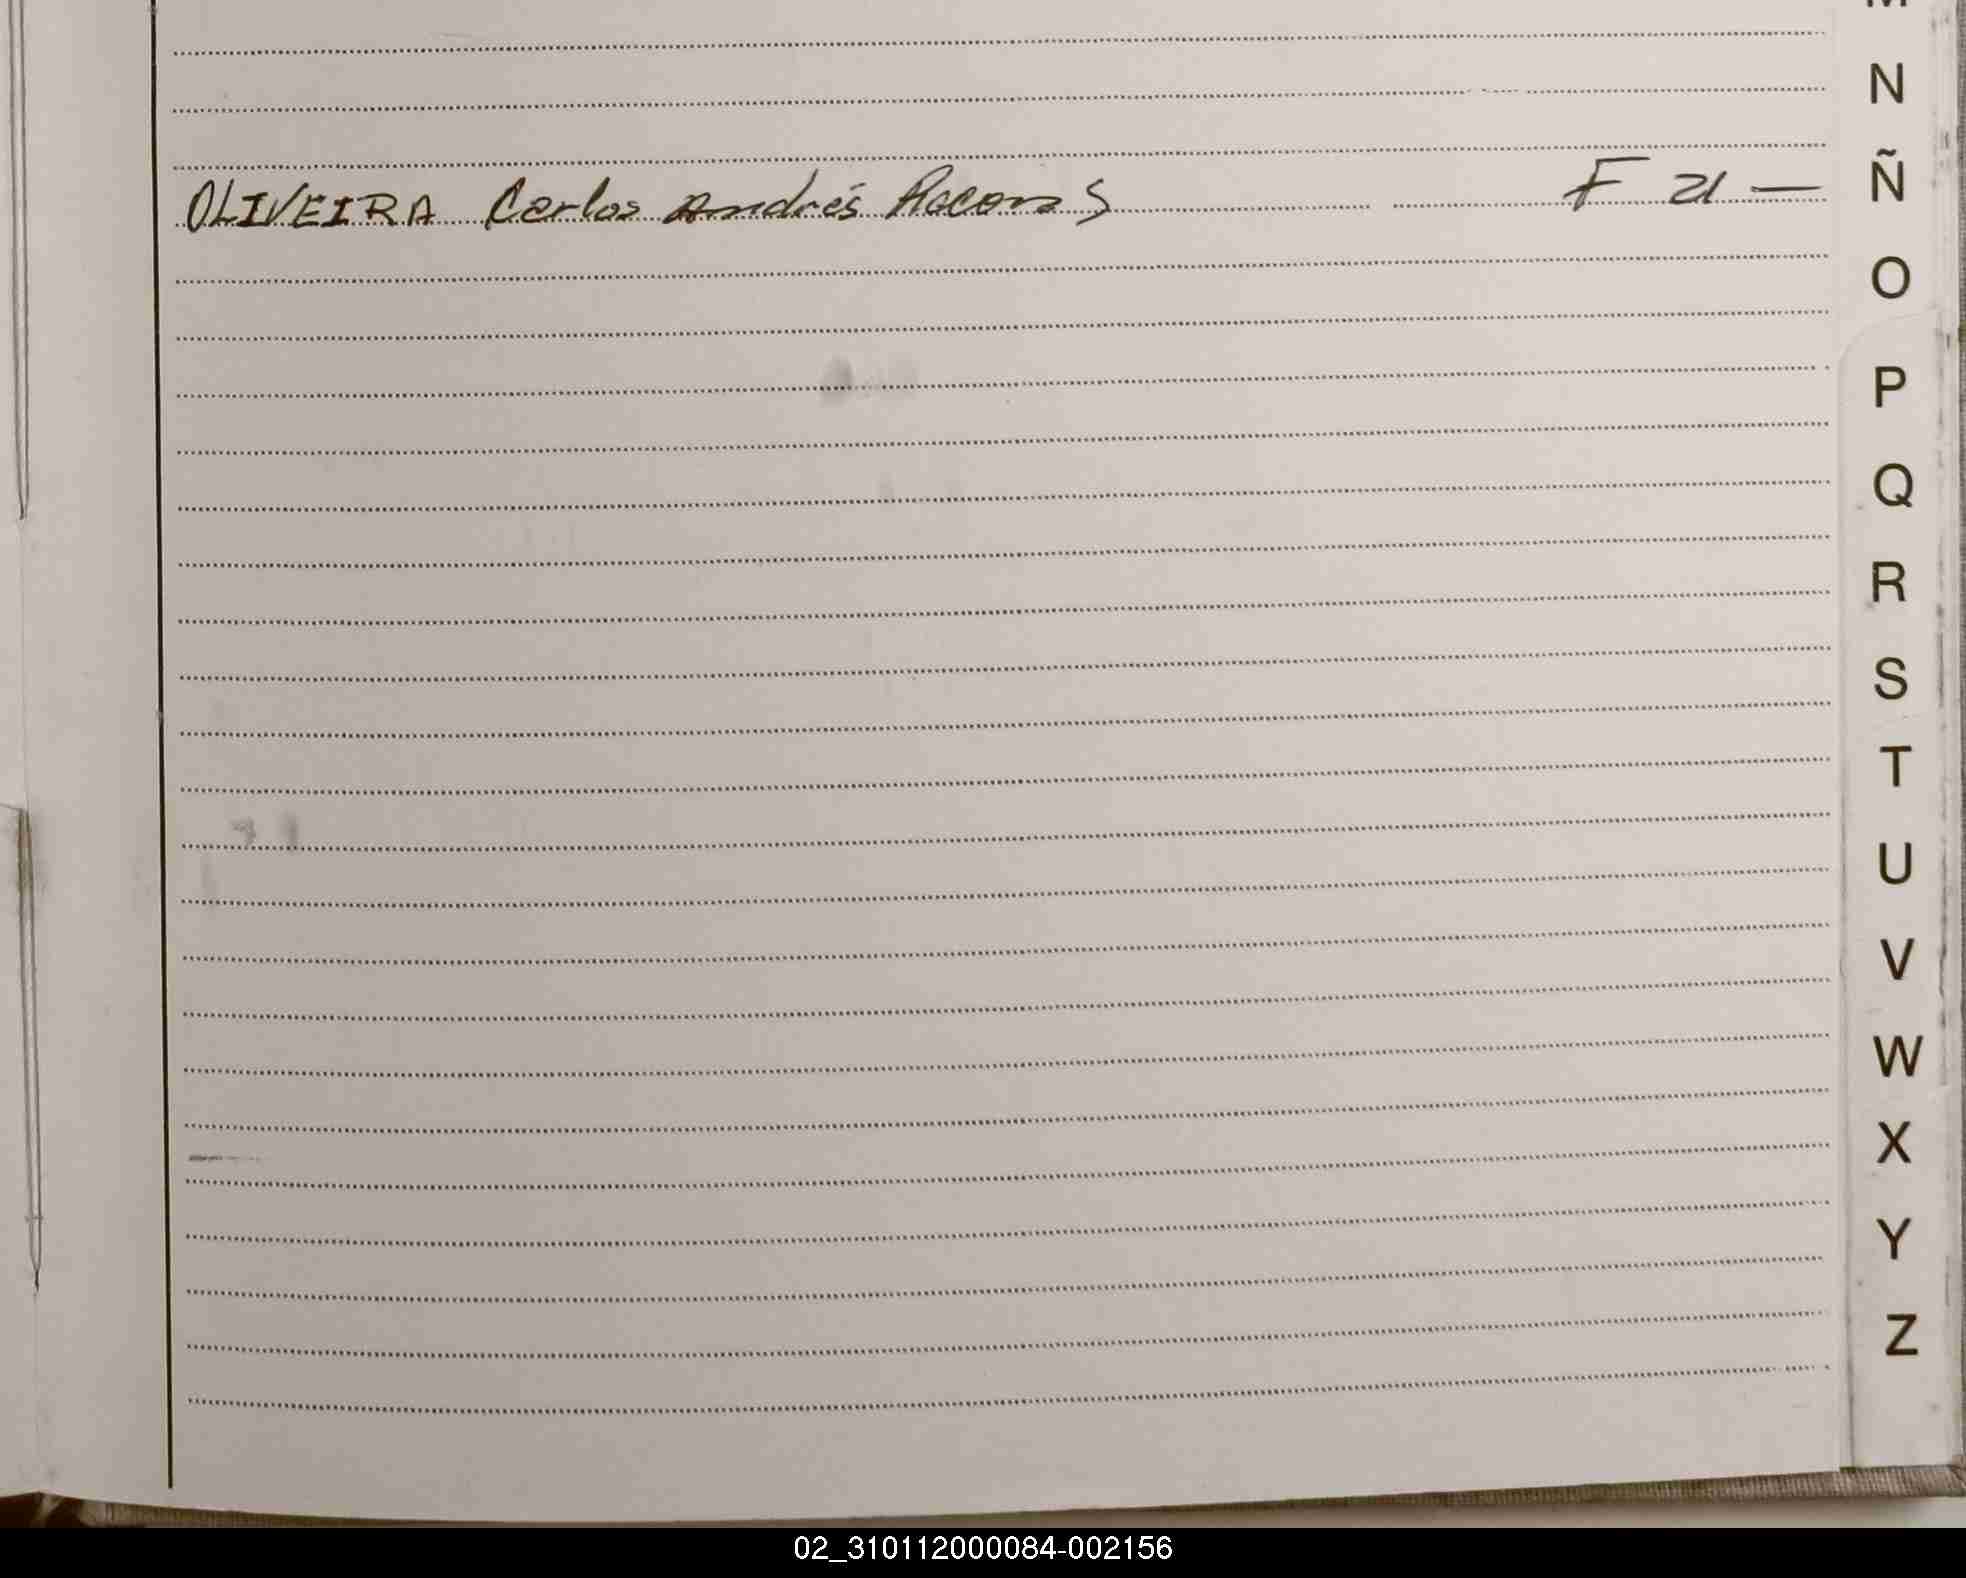 M
N
Ñ
OLIVEIRA Carlos Andrés F 21 —
O
P
Q
R
S
T
U
V
W
X
Y
Z
02_310112000084-002156